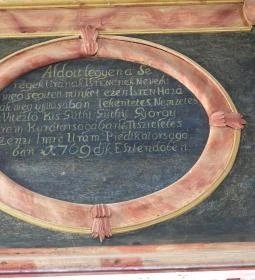 Áldott legyen a Se
regek Urának Istenének Neve ki
meg segitett minket ezen Isten Házá
nak meg ujjitásában Tekéntetes Nemzetes
Vitézlö Kis Süthi Süthi György
Uram Kurátorságában Tiszteletes
Imre Uram Prédikátorsága
ban 1769dik Esztendöben